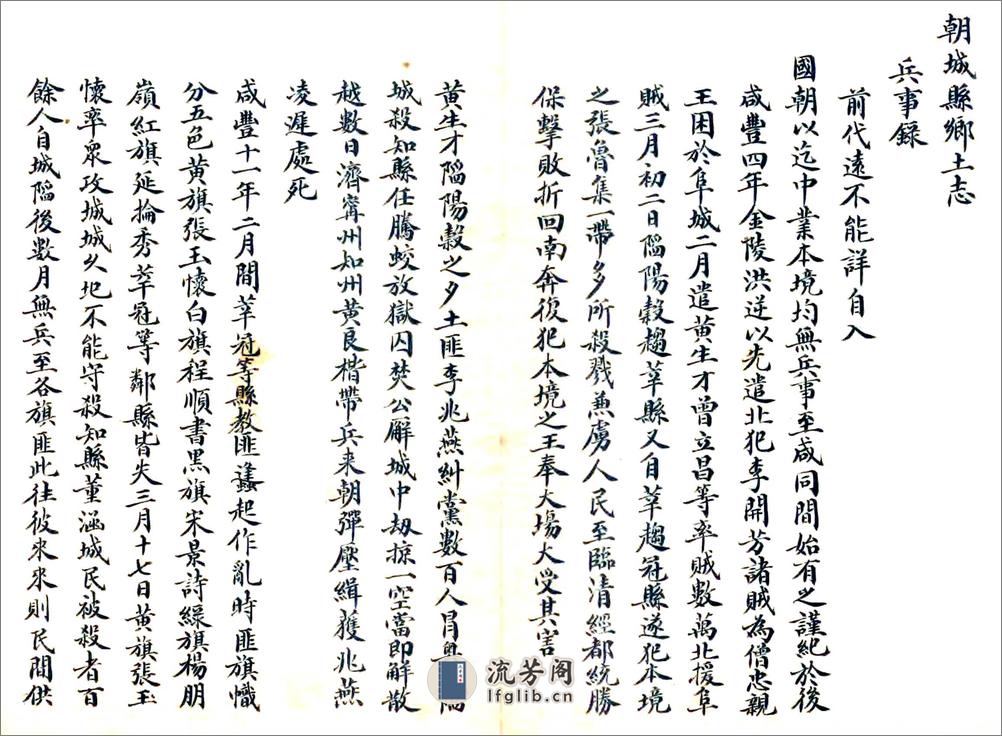 朝城縣鄉土志
兵事録
前代遠不能詳自入
國朝以迄中業本境均無兵事至咸同間始有之謹紀於後
咸豐四年金陵洪逆以先遣北犯李開芳諸賊為僧忠親
王困於阜城二月遣黄生才曾立昌等率賊數萬北援阜
賊三月初二日陷陽穀趨莘縣又自莘趨冠縣遂犯本境
之張魯集一帶多所殺戮兼虜人民至臨清經都統勝
保擊敗折回南奔復犯本境之王奉大塲大受其害
黄生才陷陽穀之夕土匪李兆燕糾黨數百人冒
城殺知縣任騰蛟放獄囚焚公廨城中刼掠一空當即解散
越數日濟甯州知州黄良楷帶兵来朝彈壓緝獲兆燕
凌遲處死
咸豐十一年二月間莘冠等縣教匪蠭起作亂時匪旗幟
分五色黄旗張玉懷白旗程順書黑旗宋景詩緑旗楊朋
嶺紅旗延掄秀莘冠等鄰縣皆失三月十七日黄旗張玉
懷率眾攻城城久圯不能守殺知縣董涵城民被殺者百
餘人自城陷後數月無兵至各旗匪此往彼來來則民間供
流芳阁
lfglib.cn